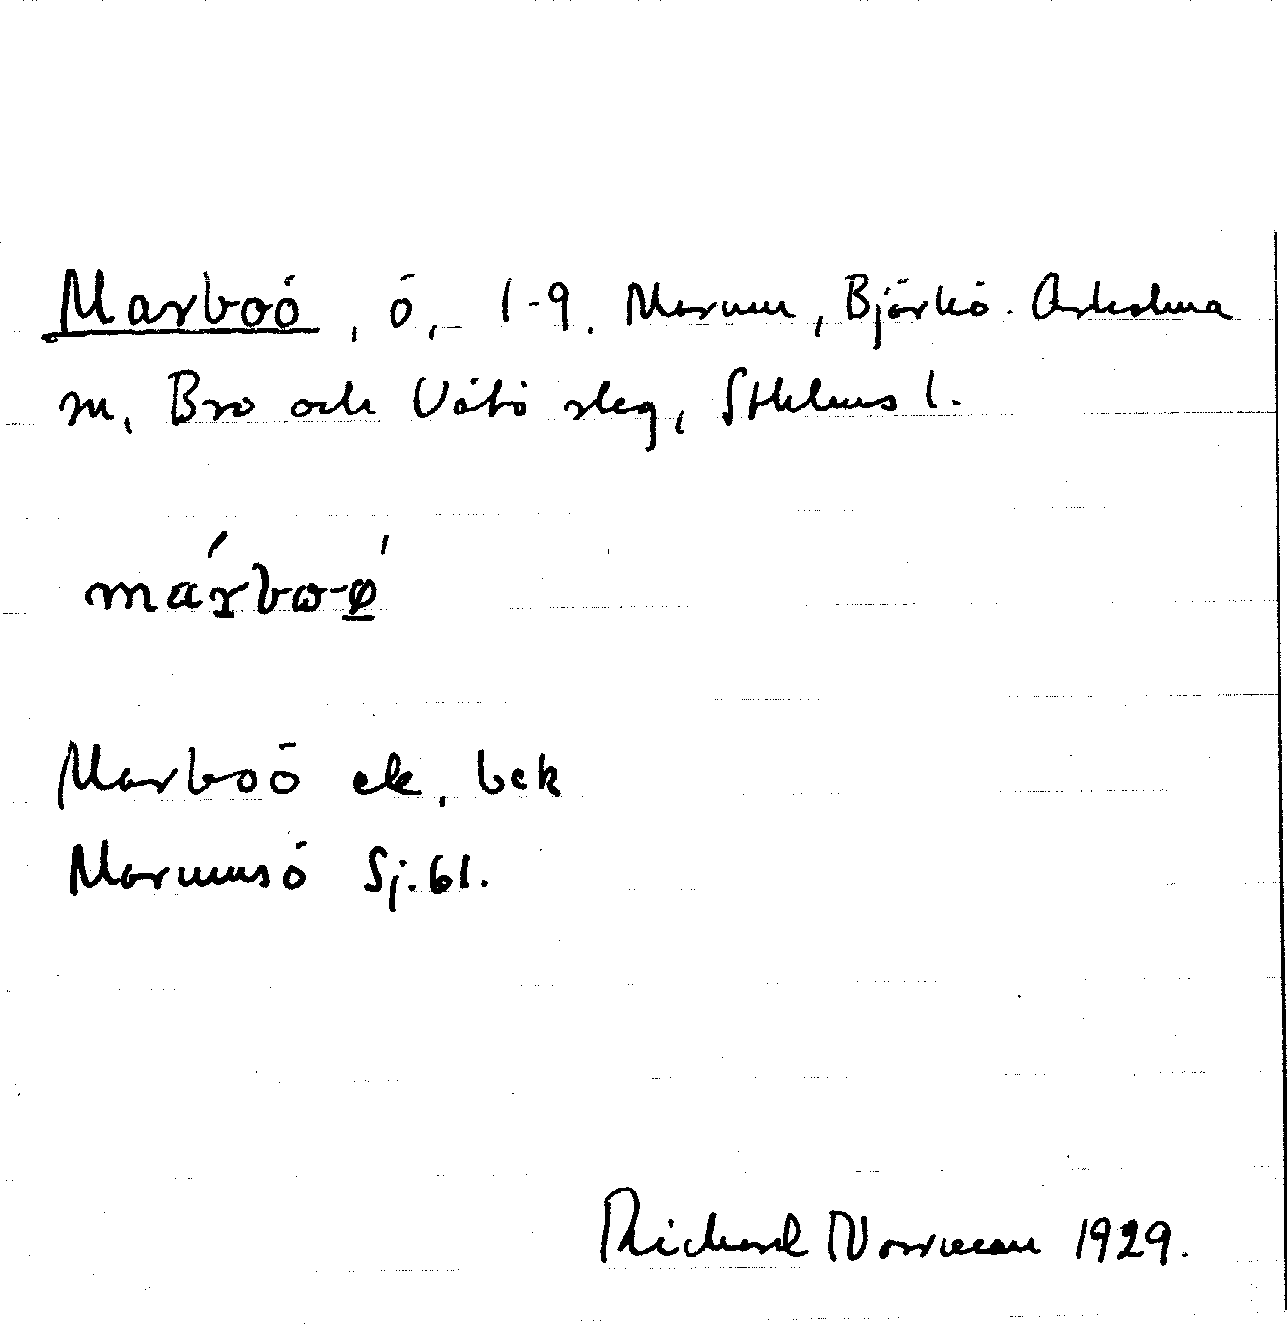 Marboö, ö, 1-9. Marum, Björkö-Arholma
sn, Bro och Vätö skg, Sthlms l.
márbo-ø̲
Marboö ek, bek
Marumsö Sj.61.
Richard Norrman 1929.